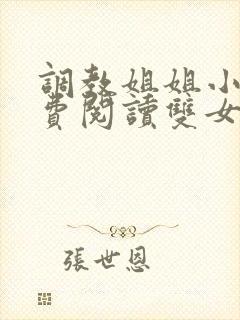 調教姐姐小
費閱讀雙女
張世恩